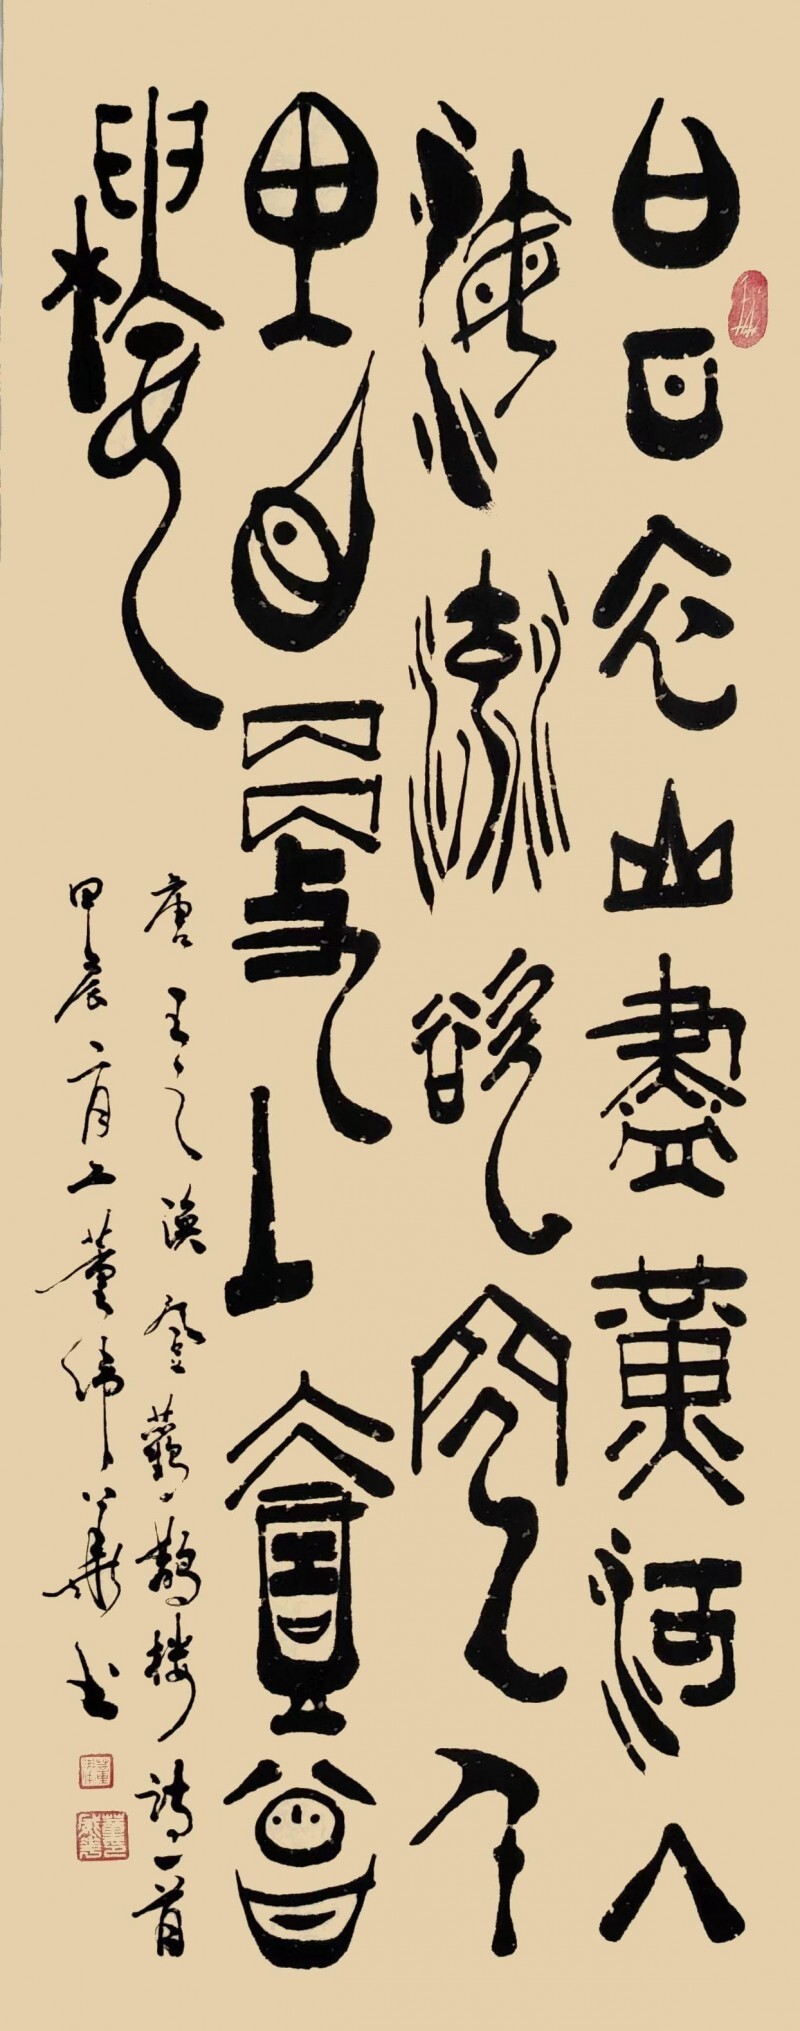 白日依山盡黃河入
海流欲窮千
里目更上壹曾
樓
唐王之渙登鸛鵲楼詩一首
甲辰二月上董緯華书